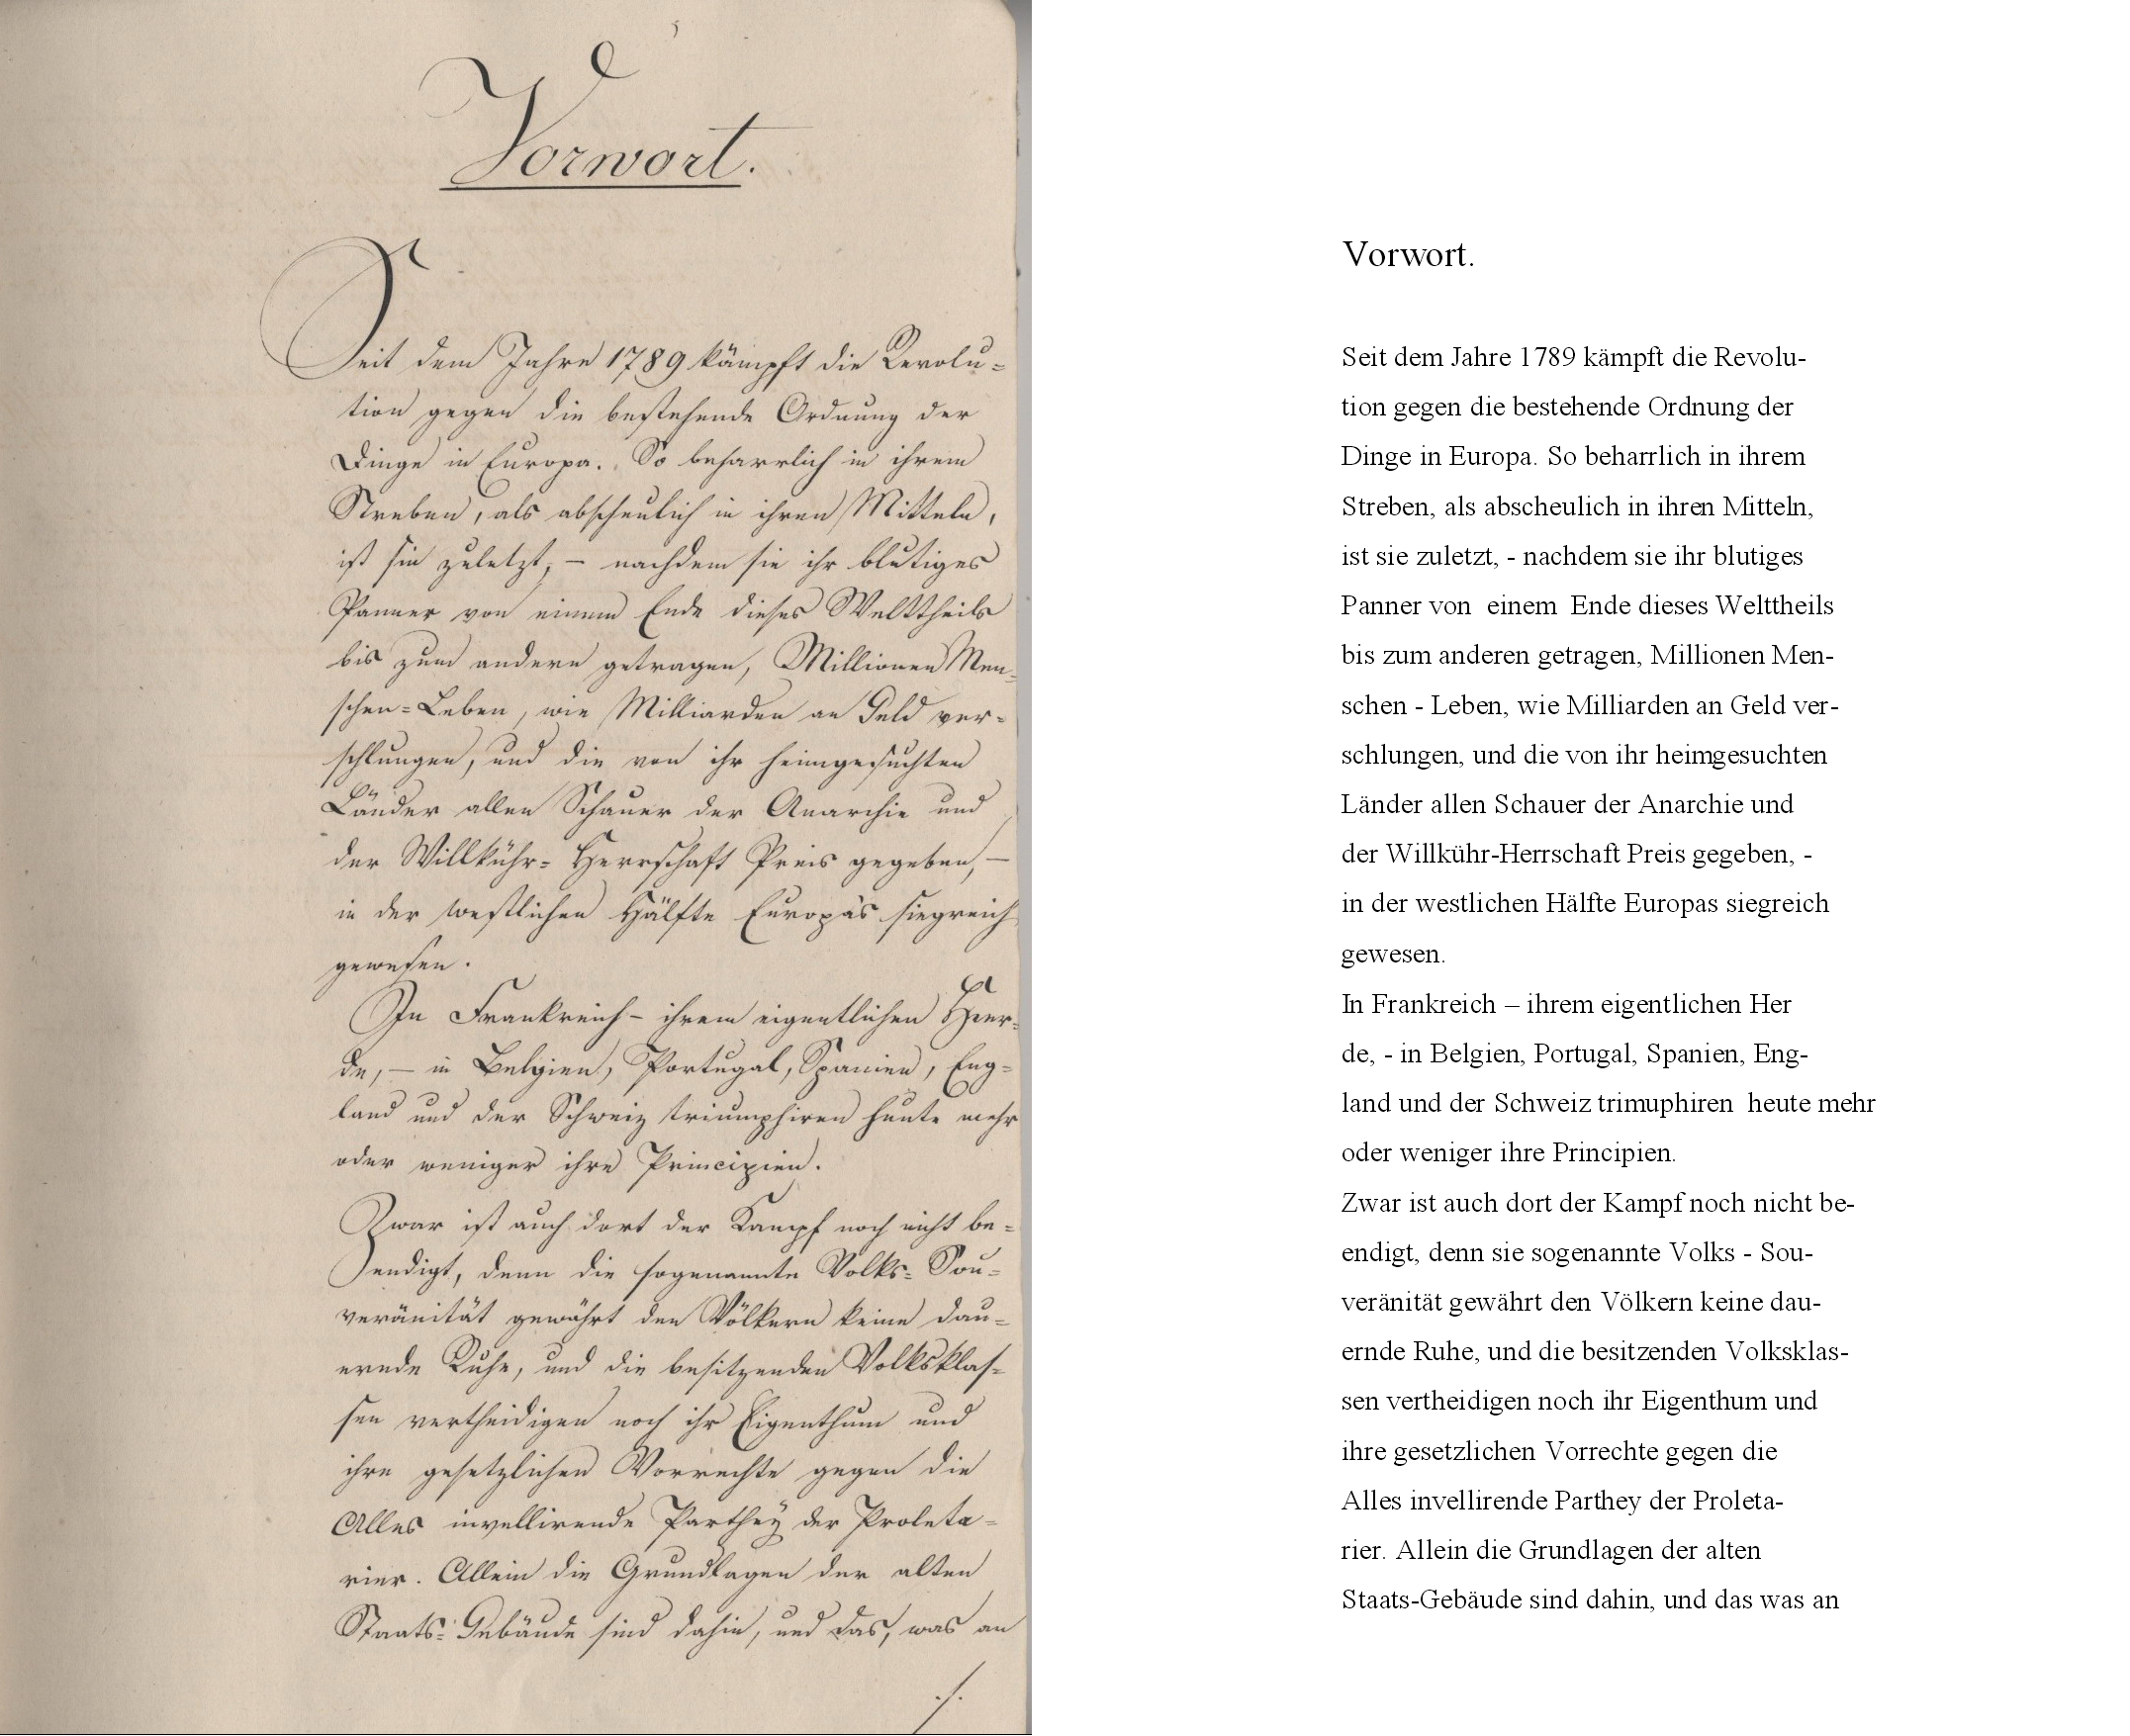 Vorwort.
Seit dem Jahre 1789 kämpft die Revolu-
tion gegen die bestehende Ordnung der
Dinge in Europa. So beharrlich in ihrem
Streben, als abscheulich in ihren Mitteln,
ist sie zuletzt, – nachdem sie ihr blutiges
Panner von einem Ende dieses Welttheils
bis zum andern getragen, Millionen Men-
schen=Leben, wie Milliarden an Geld ver-
schlungen, und die von ihr heimgesuchten
Länder allen Schauer der Anarchie und
der Willkühr=Herrschaft Preis gegeben, –
in der westlichen Hälfte Europa's siegreich
gewesen.
In Frankreich – ihrem eigentlichen Heer-
de, – in Belgien, Portugal, Spanien, Eng=
land und der Schweiz triumphiren heute mehr
oder weniger ihre Principien.
Zwar ist auch dort der Kampf noch nicht be=
endigt, denn die sogenannte Volks=Sou=
veränität gewährt den Völkern keine dau=
ernde Ruhe, und die besitzenden Volksklas=
sen vertheidigen noch ihr Eigenthum und
ihre gesetzlichen Vorrechte gegen die
Alles invellirende Parthey der Proleta=
rier. Allein die Grundlagen der alten
Staats=Gebäude sind dahin, und das, was an
./.
Vorwort.
Seit dem Jahre 1789 kämpft die Revolu-
tion gegen die bestehende Ordnung der
Dinge in Europa. So beharrlich in ihrem
Streben, als abscheulich in ihren Mitteln,
ist sie zuletzt, - nachdem sie ihr blutiges
Panner von einem Ende dieses Welttheils
bis zum anderen getragen, Millionen Men-
schen - Leben, wie Milliarden an Geld ver-
schlungen, und die von ihr heimgesuchten
Länder allen Schauer der Anarchie und
der Willkühr-Herrschaft Preis gegeben, -
in der westlichen Hälfte Europas siegreich
gewesen.
In Frankreich – ihrem eigentlichen Her
de, - in Belgien, Portugal, Spanien, Eng-
land und der Schweiz trimuphiren heute mehr
oder weniger ihre Principien.
Zwar ist auch dort der Kampf noch nicht be-
endigt, denn sie sogenannte Volks - Sou-
veränität gewährt den Völkern keine dau-
ernde Ruhe, und die besitzenden Volksklas-
sen vertheidigen noch ihr Eigenthum und
ihre gesetzlichen Vorrechte gegen die
Alles invellirende Parthey der Proleta-
rier. Allein die Grundlagen der alten
Staats-Gebäude sind dahin, und das was an